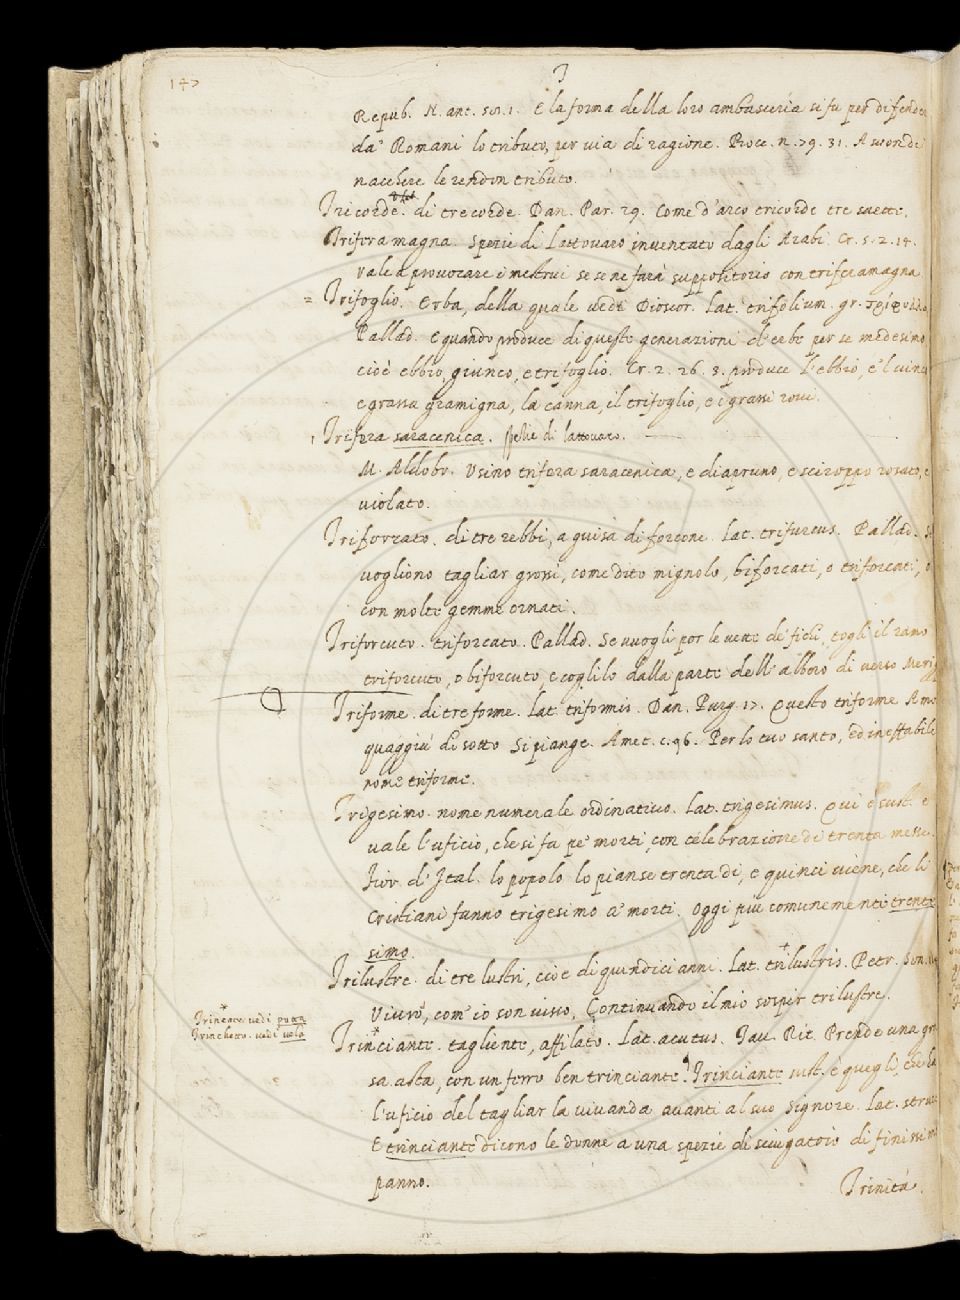 147
T
Repub. N. ant. 50. 1. E la forma della loro ambasceria si fu per difender
da' Romani lo tributo, per via di ragione. Proe. n. 79. 31. A
nacchere le rendon tributo.
Tricorde. di tre corde. Dan. Par. 29. Come d'arco tricorde tre saette.
Trifera magna. Spezie di Lattovaro inventato dagli Arabi. Cr. 5. 2. 14.
Vale a provocare i mestrui se se ne farà suppositorio con trifera magna
= Trifoglio. Erba, della quale vedi Dioscor. Lat. trifolium. gr.
Pallad. E quando produce di queste generazioni d'erbe per se medesimo,
cioè ebbio, giunco, e trifoglio. Cr. 2. 26. 3. produce l'ebbio, e 'l
e grassa gramigna, la canna, il trifoglio, e i grassi rovi.
Trifera saracenica. spezie di lattovaro.
M. Aldobr. Usino trifera saracenica, e diapruno, e sciroppo rosato, e
violato.
Triforzato. di tre rebbi, a guisa di forcone. Lat. trifurcus. Pallad. Si
vogliono tagliar grossi, come dito mignolo, biforcati, o triforcati, o
con molte gemme ornati.
Triforcuto. triforcato. Pallad. Se vuogli por le vette de' fichi, togli il ramo
triforcuto, o biforcuto, e coglilo dalla parte dell' albero di verso Merig
Triforme. di tre forme. Lat. triformis. Dan. Purg. 17. Questo triforme Amor
quaggiù di sotto Si piange. Amet. c. 96. Per lo tuo santo, ed ineffabile
nome triforme.
Trigesimo. nome numerale ordinativo. Lat. trigesimus. Qui è sust. e
vale l'uficio, che si fa pe' morti, con celebrazione di trenta messe.
Fior. d' Ital. lo popolo lo pianse trenta dì, e quinci viene, che li
Cristiani fanno trigesimo a' morti. Oggi più comunemente trente
simo.
Trilustre. di tre lustri, cioè di quindici anni. Lat. trilustris. Petr. Son.
Vivrò, com' io son visso, Continuando il mio sospir trilustre.
Trincare vedi
Trinchetto. vedi vela
Trinciante. tagliente, affilato. Lat. acutus. Tav. Rit. Prende una gr
sa asta, con un ferro ben trinciante. Trinciante sust. è quegli, che ha
l'uficio del tagliar la vivanda avanti al suo Signore. Lat. struc
E trinciante dicono le donne a una spezie di sciugatoio di finissimo
panno.
Trinità.